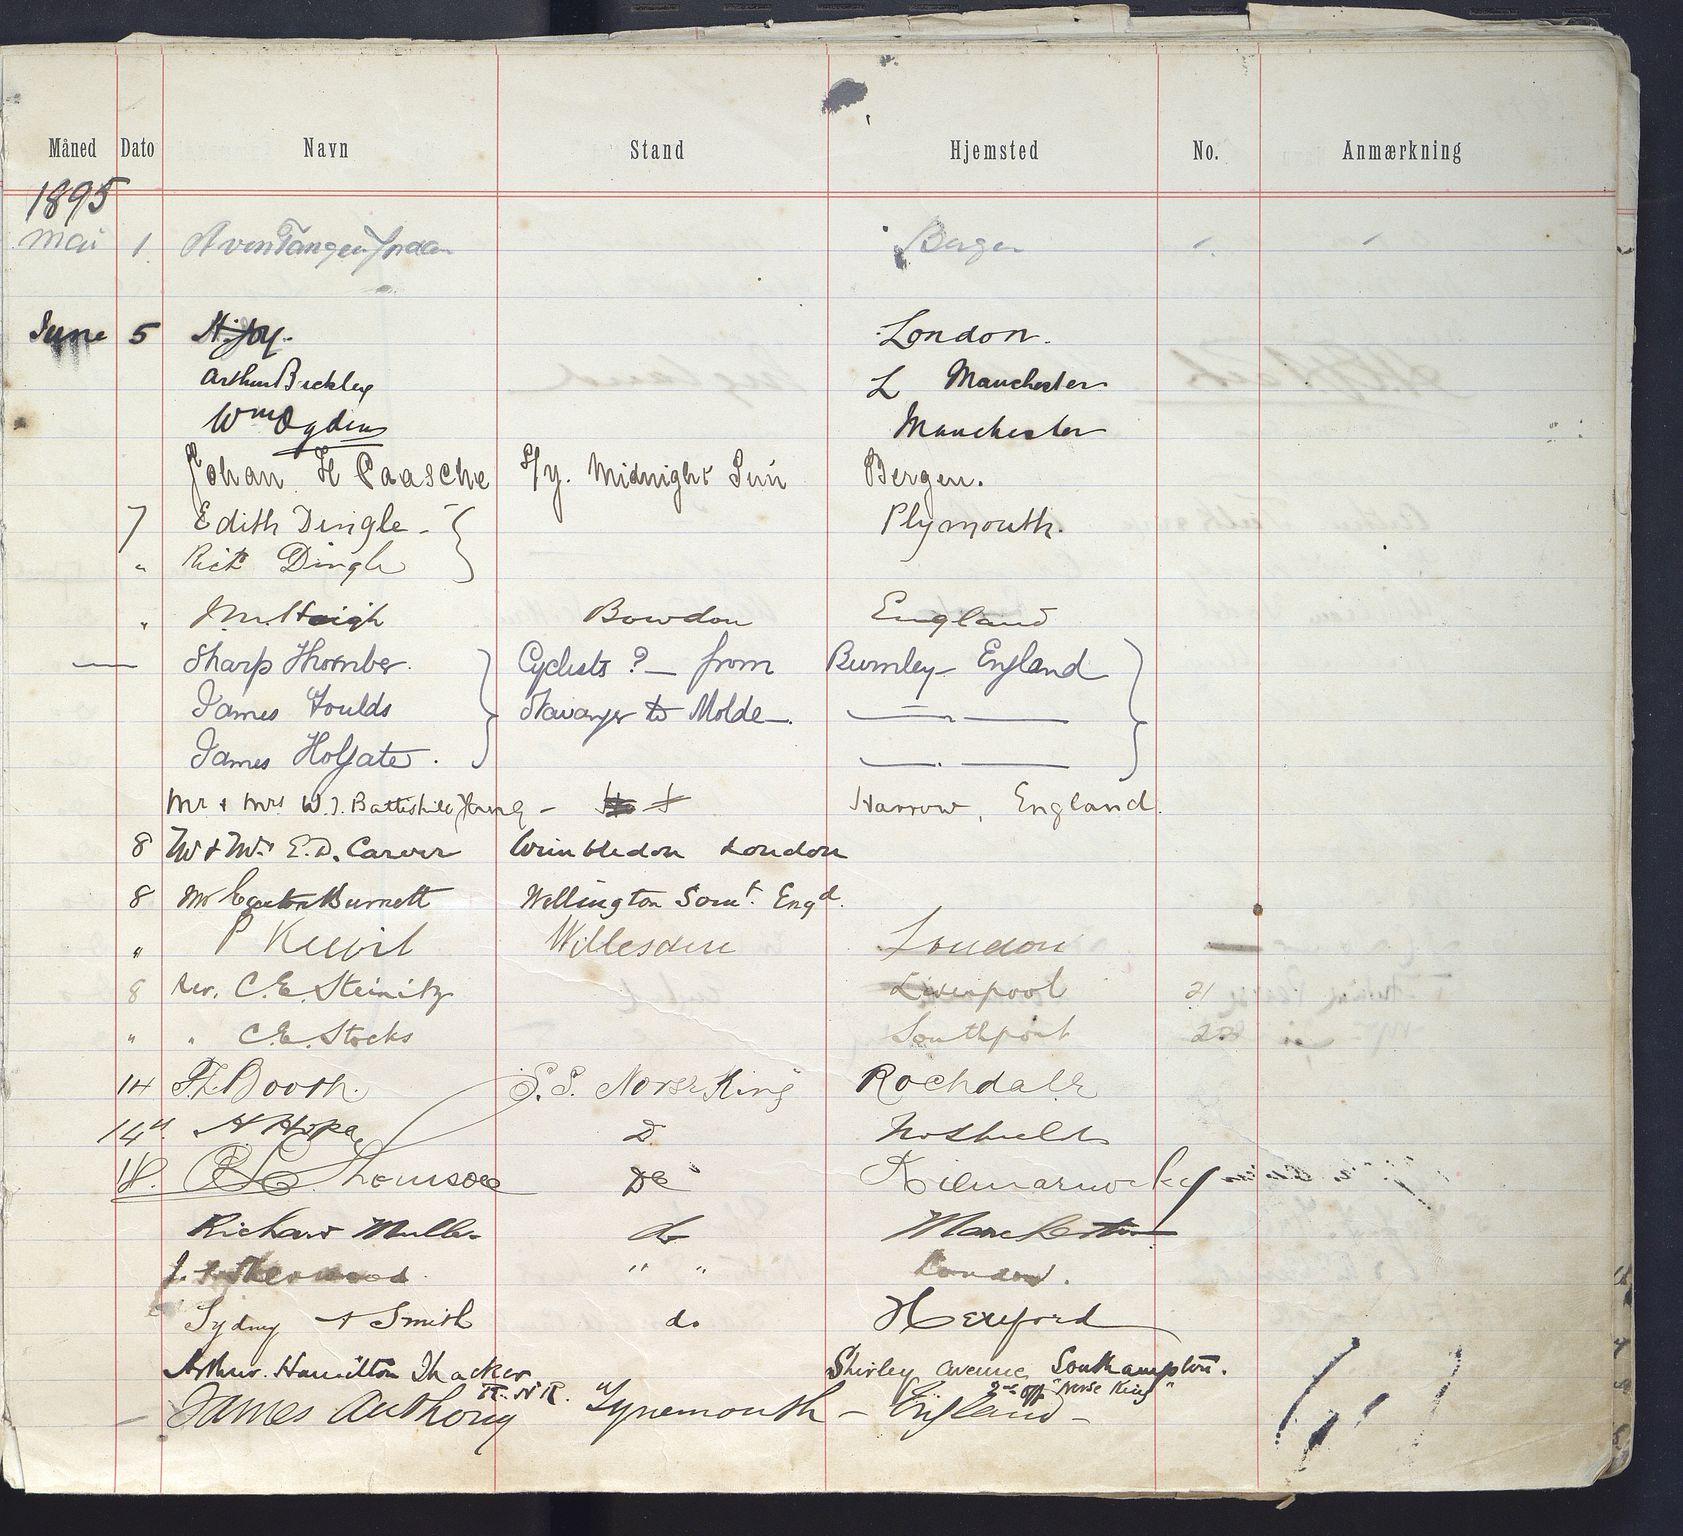 Måned Dato Navn Stand Hjemsted No. Anmærkning
1895
Mai 1. Bergen
June 5 H. Joy. London.
Arthur Buckley L Manchester
Wm Ogden Manchester
Johan H Paasche S/y. Midnight Sun Bergen.
7 Edith Dingle - Plymouth.
" Dingle
" J. M. Haigh Bowdon England
— Sharp Thornber. Cyclists ? — from Burnley - England
James Foulds Stavanger to Molde —. — —
James Holgate. — . —
Mr + Mrs W. J. Battishill - Harrow, England.
8 Mr + Mrs E. D. Carver Wimbledon London
8 Mr Burnett Wellington Somt. Engd.
" P Willesden London —
8 Rev. C. E. Steinitz Liverpool 21
" " C. E. Stocks Southport
14 Booth. S. S. Norse King Rochdale
14 " A D
18. Thomson Do Kilmarnock
Richard Muller do Manchester
J. Sherwood " " London.
Sydney A Smith do Hereford
Arthur. Hamilton Thacker R. N R. Shirley avenue Southampton.
2nd off "Norse King"
— James Anthony Tynemouth — England —